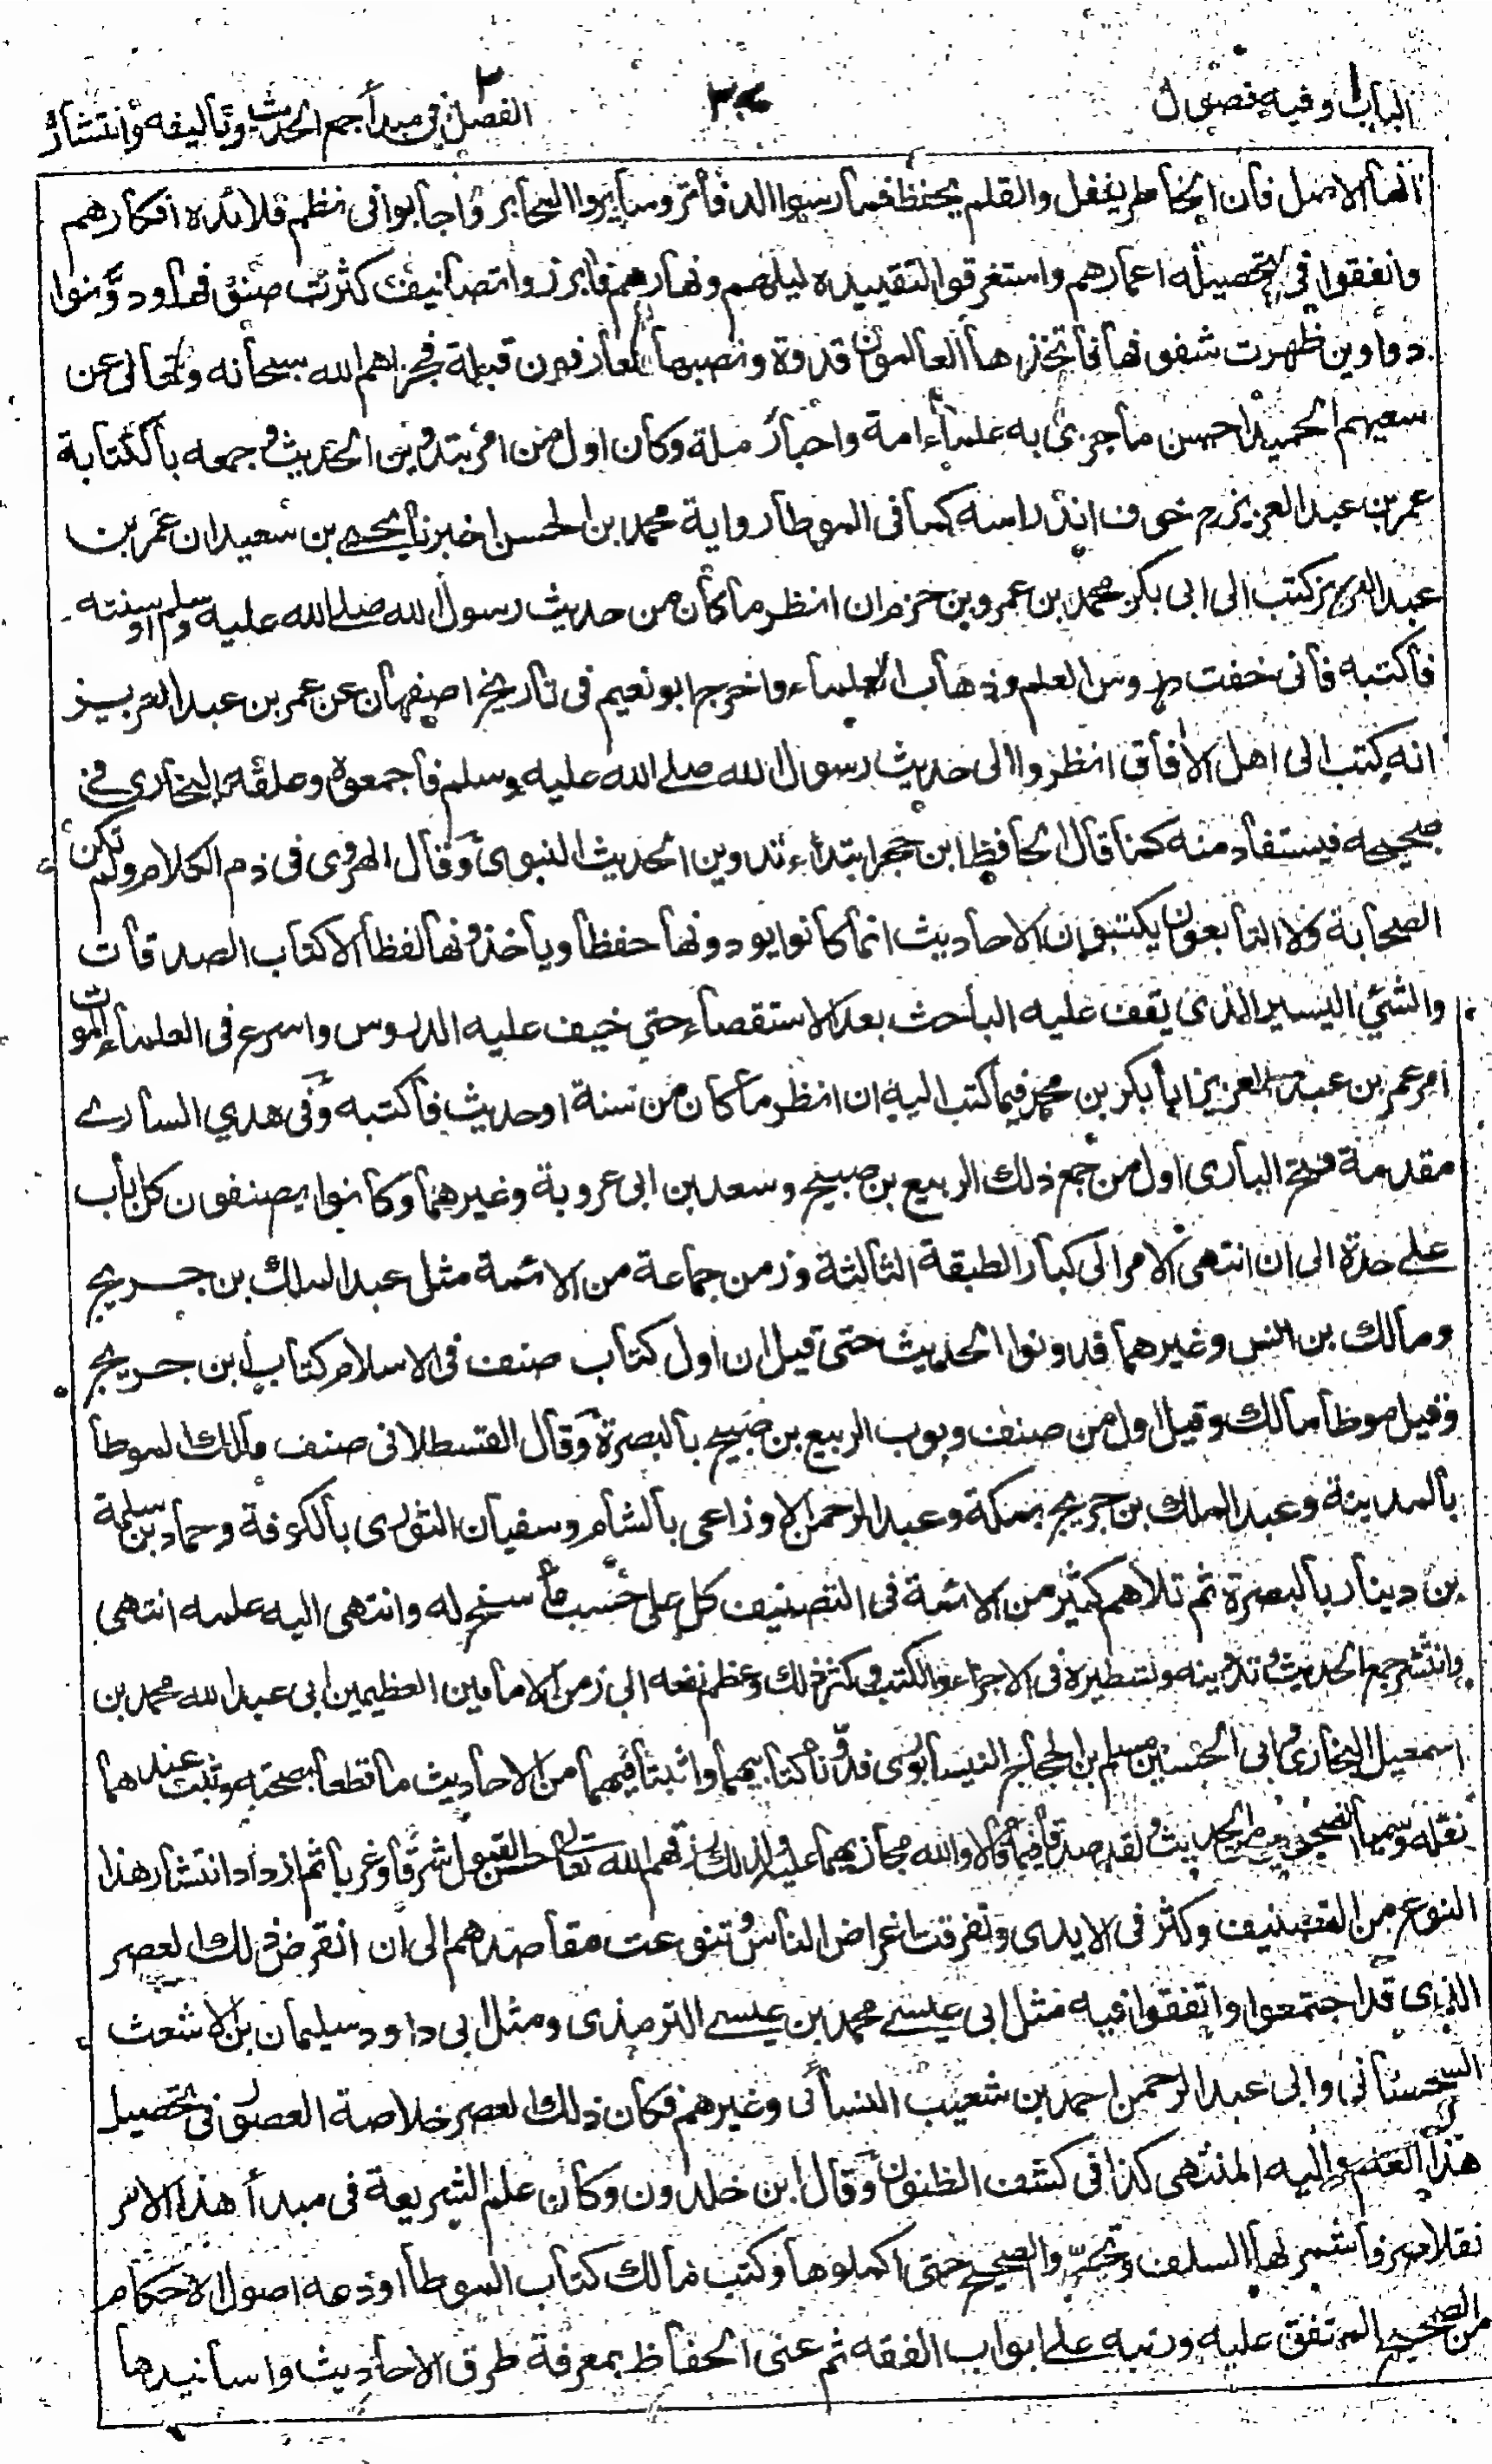 الباب ١ وفيه فصول
٣٤
الفصل ٢ فى مبدأ جمع الحديث وتاليفه وانتشاره
انها الاصل فان الخاطر يغفل والقلم يحفظ فمارسوا الدفاتر وسايروا المحابر واجابوا فى نظم قلائده افكارهم
وانفقوا فى تحصيله اعمارهم واستغرقوا لتقييده ليلهم ونهارهم فابرزوا تصانيف كثرت صنوفها ودوّنوا
دواوين ظهرت شفوفها فاتخذها العالمون قدوة ونصبها العارفون قبلة فجزاهم الله سبحانه وتعالى عن
سعيهم الحميد احسن ما جزى به علماء امة واحبار ملة وكان اول من امر بتدوين الحديث وجمعه بالكتابة
عمر بن عبد العزيز رح خوف اندراسه كما فى الموطا رواية محمد بن الحسن اخبرنا يحيى بن سعيد ان عمر بن
عبد العزيز كتب الى ابى بكر محمد بن عمرو بن حزم ان انظر ما كان من حديث رسول الله صلى الله عليه وسلم او سنته
فاكتبه فانى خفت دروس العلم وذهاب العلماء واخرج ابو نعيم فى تاريخ اصفهان عن عمر بن عبد العزيز
انه كتب الى اهل الافاق انظروا الى حديث رسول الله صلى الله عليه وسلم فاجمعوه وعلقه البخارى فى
صحيحه فيستفاد منه كما قال الحافظ ابن حجر ابتداء تدوين الحديث النبوى وقال الهروى فى ذم الكلام ولم تكن
الصحابة ولا التابعون يكتبون الاحاديث انما كانوا يودونها حفظا وياخذونها لفظا الا كتاب الصدقات
والشئ اليسير الذى يقف عليه الباحث بعد الاستقصاء حتى خيف عليه الدروس واسرع فى العلماء الموت
امر عمر بن عبد العزيز ابا بكر بن محمد فيما كتب اليه ان انظر ما كان من سنة او حديث فاكتبه وفى هدي السارى
مقدمة فتح البارى اول من جمع ذلك الربيع بن صبيح وسعد بن ابى عروبة وغيرهما وكانوا يصنفون كل باب
على حدة الى ان انتهى الامر الى كبار الطبقة الثالثة وزمن جماعة من الائمة مثل عبد الملك بن جريج
ومالك بن انس وغيرهما فدونوا الحديث حتى قيل ان اول كتاب صنف فى الاسلام كتاب ابن جريج
وقيل موطا مالك وقيل اول من صنف وبوب الربيع بن صبيح بالبصرة وقال القسطلانى صنف مالك الموطا
بالمدينة وعبد الملك بن جريج بمكة وعبد الرحمن الاوزاعى بالشام وسفيان الثورى بالكوفة وحماد بن سلمة
بن دينار بالبصرة ثم تلاهم كثير من الائمة فى التصنيف كل على حسب ما سنح له وانتهى اليه علمه انتهى
وانتشر جمع الحديث وتدوينه وتسطيره فى الاجزاء والكتب وكثر ذلك وعظم نفعه الى زمن الامامين العظيمين ابى عبد الله محمد بن
اسمعيل البخارى وابى الحسين مسلم بن الحجاج النيسابورى فدونا كتابيهما واثبتا فيهما من الاحاديث ما قطعا بصحته وثبت عندهما
نقله وسميا الصحيحين من الحديث ولقد صدقا فيما قالا والله مجازيهما عليه ولذلك رزقهما الله تعالى حسن القبول شرقا وغربا ثم ازداد انتشار هذا
النوع من التصنيف وكثر فى الايدى وتفرقت اغراض الناس وتنوعت مقاصدهم الى ان انقرض ذلك العصر
الذى قد اجتمعوا واتفقوا فيه مثل ابى عيسى محمد بن عيسى الترمذى ومثل ابى داود سليمان بن الاشعث
السجستانى وابى عبد الرحمن احمد بن شعيب النسائى وغيرهم فكان ذلك العصر خلاصة العصور فى تحصيل
هذا العلم واليه المنتهى كذا فى كشف الظنون وقال ابن خلدون وكان علم الشريعة فى مبدأ هذا الامر
نقلا صرفا شمر لها السلف وتحروا الصحيح حتى اكملوها وكتب مالك كتاب الموطا اودعه اصول الاحكام
من الصحيح المتفق عليه ورتبه على ابواب الفقه ثم عنى الحفاظ بمعرفة طرق الاحاديث واسانيدها